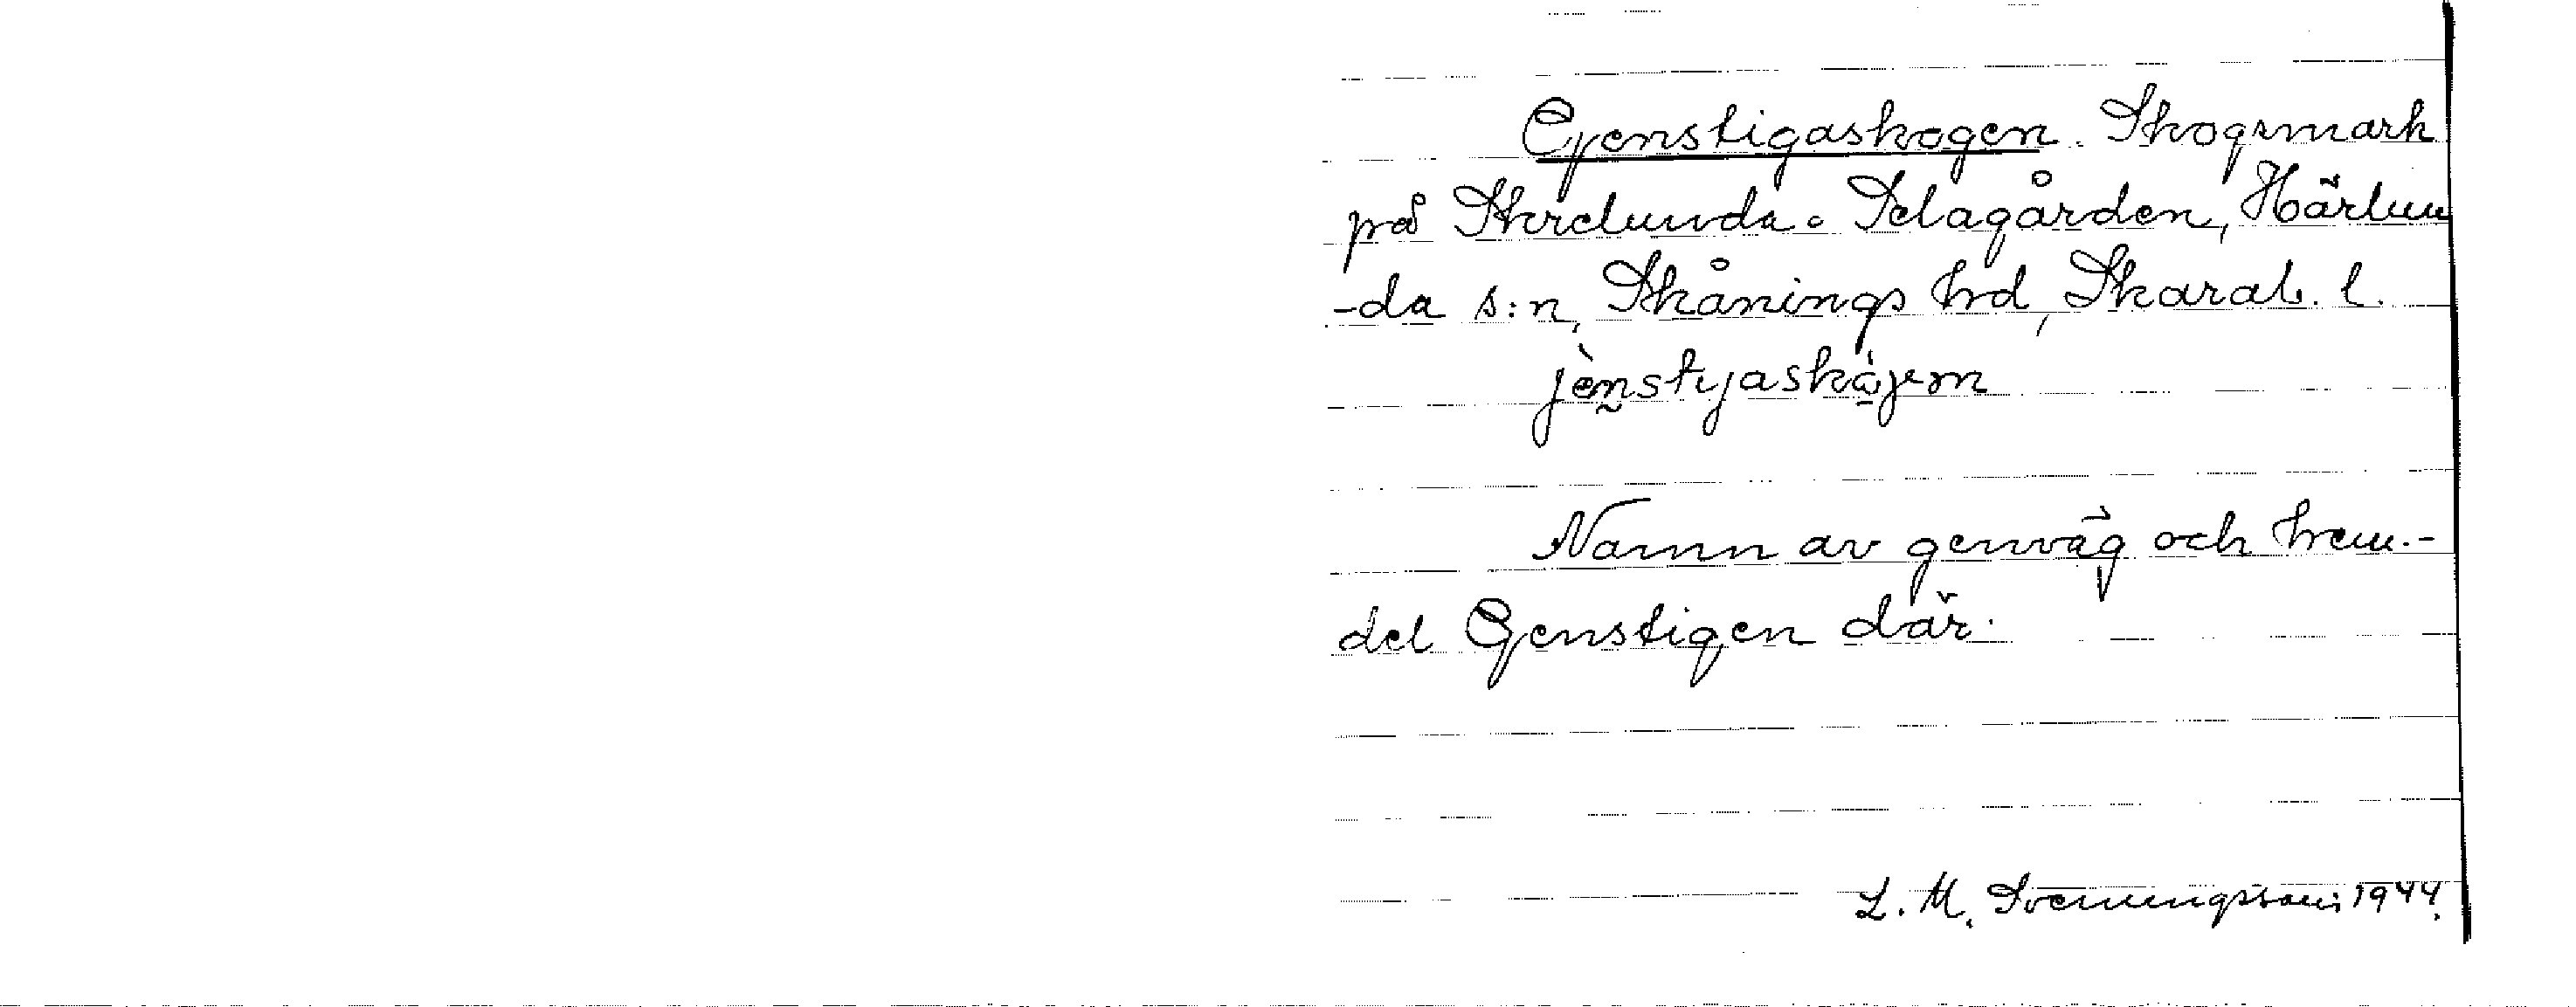 Genstigaskogen. Skogsmark
på Skrelunda. Selagården, Härlun
-da s:n, Skånings hrd, Skarab. l.
Namn av genväg och hem.-
del Genstigen där.
L. M. Svenungsson; 1944.